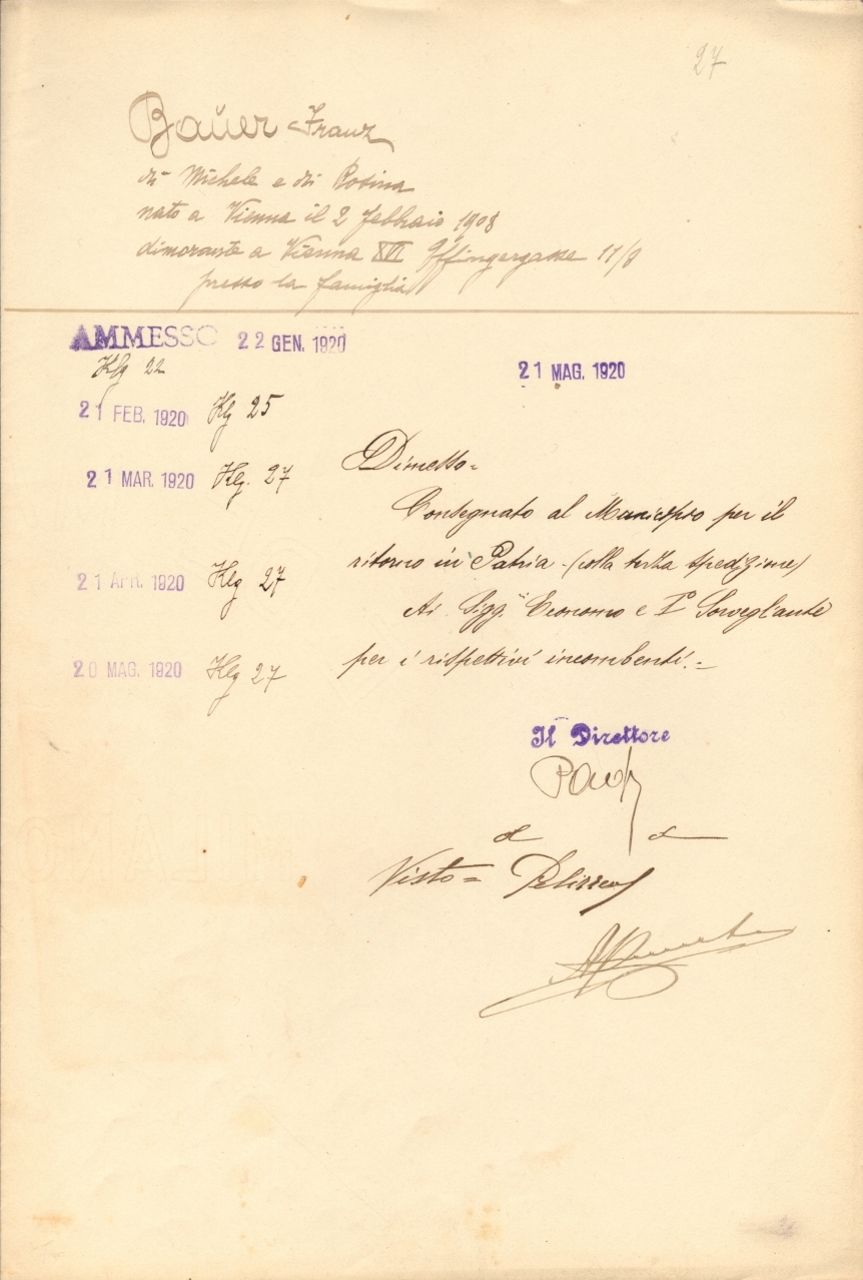 27
Baŭer Franz
di Michele e di Rosina
nato a Vienna il 2 febbraio 1908
dimorante a Vienna XVI 11/8
presso la famiglia
AMMESSO 22 GEN. 1920
Klg 22
21 FEB. 1920 Klg 25
21 MAR. 1920 Klg. 27
21 APR. 1920 Klg 27
20 MAG. 1920 Klg 27
21 MAG. 1920
Dimesso =
Consegnato al Municipio per il
ritorno in Patria - (colla terza spedizione)
Ai Sigg. Economo e I° Sorvegliante
per i rispettivi incombenti. =
Il Direttore
Visto =